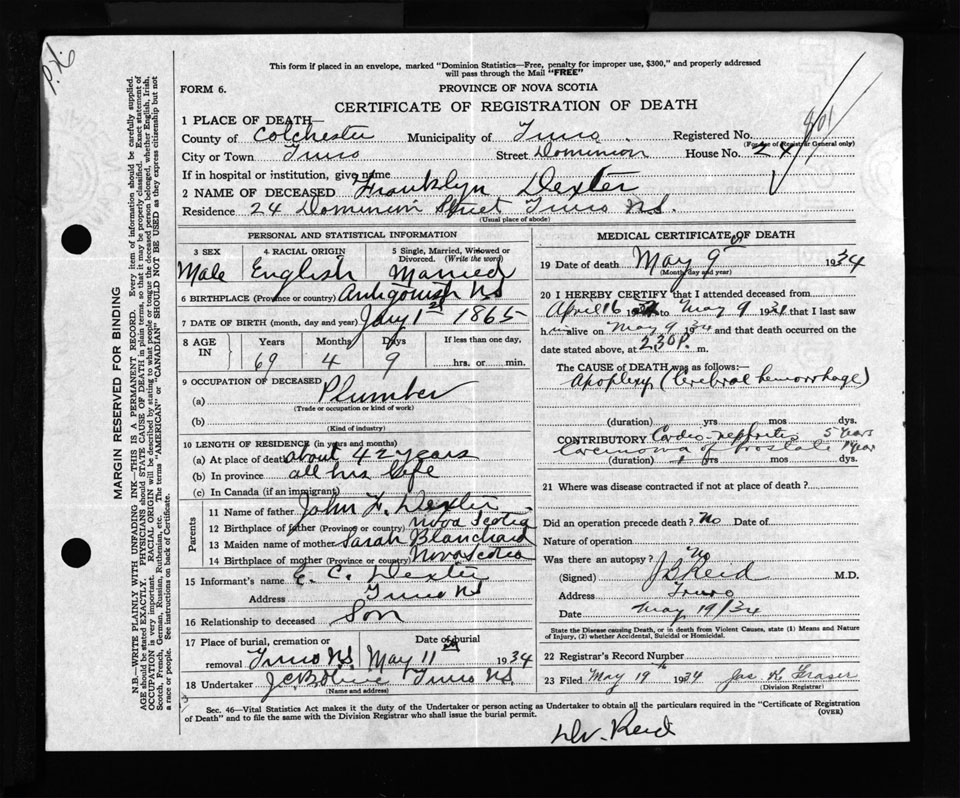 P.X.
This form if placed in an envelope, marked "Dominion Statistics—Free, penalty for improper use, $300," and properly addressed
will pass through the Mail "FREE"
FORM 6.
PROVINCE OF NOVA SCOTIA
CERTIFICATE OF REGISTRATION OF DEATH
1 PLACE OF DEATH—
County of Colchester Municipality of Truro Registered No. 801
(For use of Registrar General only)
City or Town Truro Street Dominion House No. 24
If in hospital or institution, give name
2 NAME OF DECEASED Franklyn Dexter
Residence 24 Dominion Street Truro N.S.
(Usual place of abode)
PERSONAL AND STATISTICAL INFORMATION
3 SEX 4 RACIAL ORIGIN 5 Single, Married, Widowed or Divorced. (Write the word)
Male English Married
6 BIRTHPLACE (Province or country) Antigonish N.S
7 DATE OF BIRTH (month, day and year) Jany 1st 1865
8 AGE IN Years Months Days If less than one day,
69 4 9 hrs. or min.
9 OCCUPATION OF DECEASED
(a) Plumber
(Trade or occupation or kind of work)
(b)
(Kind of industry)
10 LENGTH OF RESIDENCE (in years and months)
(a) At place of death about 42 years
(b) In province all his life
(c) In Canada (if an immigrant)
Parents
11 Name of father John F. Dexter
12 Birthplace of father (Province or country) Nova Scotia
13 Maiden name of mother Sarah Blanchard
14 Birthplace of mother (Province or country) Nova Scotia
15 Informant's name E. C. Dexter
Address Truro N S
16 Relationship to deceased Son
17 Place of burial, cremation or Date of burial
removal Truro N.S. May 11th 1934
18 Undertaker Truro N.S.
(Name and address)
MEDICAL CERTIFICATE OF DEATH
19 Date of death May 9th 1934
(Month, day and year)
20 I HEREBY CERTIFY that I attended deceased from
April 16 1934 to May 9 1934 that I last saw
him alive on May 9 1934 and that death occurred on the
date stated above, at 2.30 P. m.
The CAUSE OF DEATH was as follows:—
Apoplexy (Cerebral hemorrhage)
(duration) yrs mos dys.
CONTRIBUTORY Cardio-nephritis 5 years
Carcinoma of Prostate 1 year
(duration) yrs mos dys.
21 Where was disease contracted if not at place of death?
Did an operation precede death? No Date of
Nature of operation
Was there an autopsy? No
(Signed) J B Reid M.D.
Address Truro
Date May 19/34
State the Disease causing Death, or in death from Violent Causes, state (1) Means and Nature
of Injury, (2) whether Accidental, Suicidal or Homicidal.
22 Registrar's Record Number
23 Filed May 19th 1934 Jas K. Fraser
(Division Registrar)
Sec. 46—Vital Statistics Act makes it the duty of the Undertaker or person acting as Undertaker to obtain all the particulars required in the "Certificate of Registration
of Death" and to file the same with the Division Registrar who shall issue the burial permit.
(OVER)
Dr. Reid
MARGIN RESERVED FOR BINDING
N.B.—WRITE PLAINLY WITH UNFADING INK—THIS IS A PERMANENT RECORD. Every item of information should be carefully supplied.
AGE should be stated EXACTLY. PHYSICIANS should STATE CAUSE OF DEATH in plain terms, so that it may be properly classified. Exact statement of
OCCUPATION is very important. RACIAL ORIGIN will be described by stating to what people or tongue the deceased person belonged, whether English, Irish,
Scotch, French, German, Russian, Ruthenian, etc. The terms "AMERICAN" or "CANADIAN" SHOULD NOT BE USED as they express citizenship but not
a race or people. See instructions on back of Certificate.